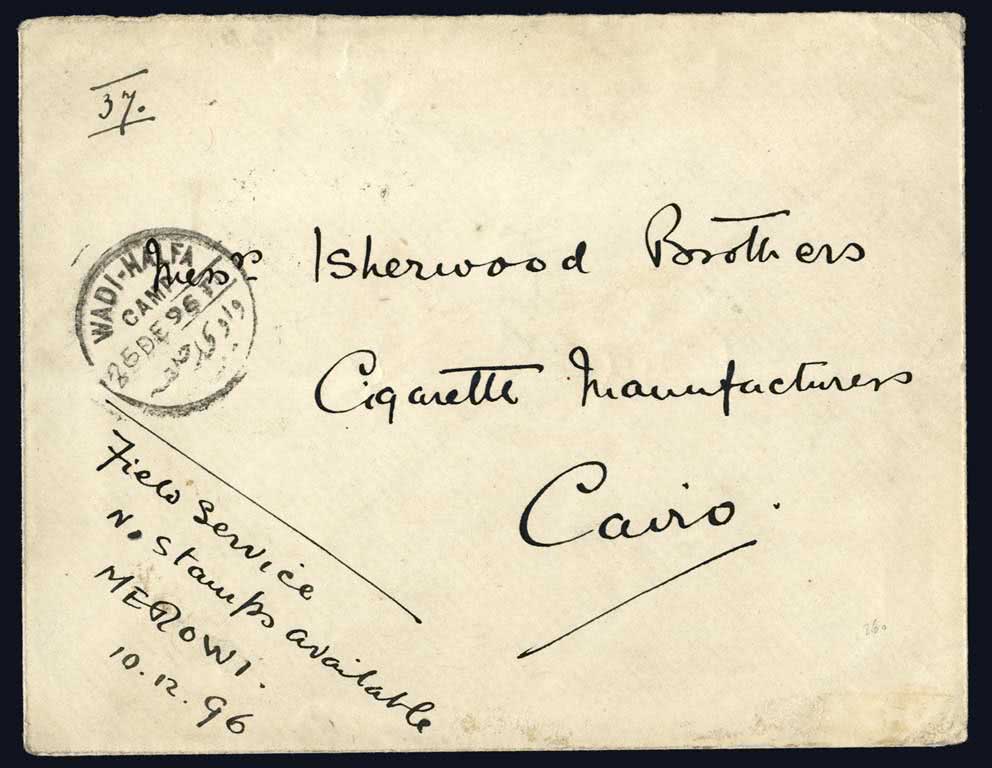 37.
WADI-HALFA
CAMP
25 DE 96
وادى حلفا
Messrs Isherwood Brothers
Cigarette Manufacturers
Cairo.
Field Service
No stamps available
MEROWI.
10.12.96